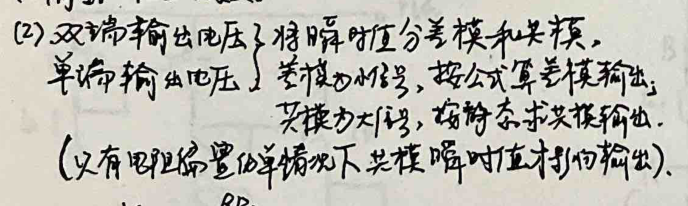 (2) 双端输出电压 } 将瞬时值分差模和共模。
单端输出电压 差模为小信号，按公式算差模输出；
共模为大信号，按静态求共模输出.
(只有电阻偏置的单情况下共模瞬时值才影响输出).